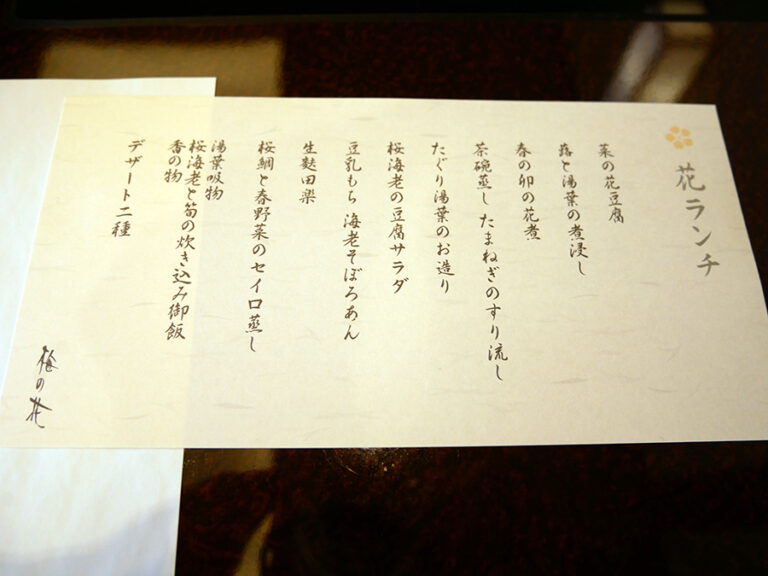 花ランチ
菜の花豆腐
蕗と湯葉の煮浸し
春の卯の花煮
茶碗蒸し たまねぎのすり流し
たぐり湯葉のお造り
桜海老の豆腐サラダ
豆乳もち 海老そぼろあん
生麩田楽
桜鯛と春野菜のセイロ蒸し
湯葉吸物
桜海老と筍の炊き込み御飯
香の物
デザート二種
梅の花